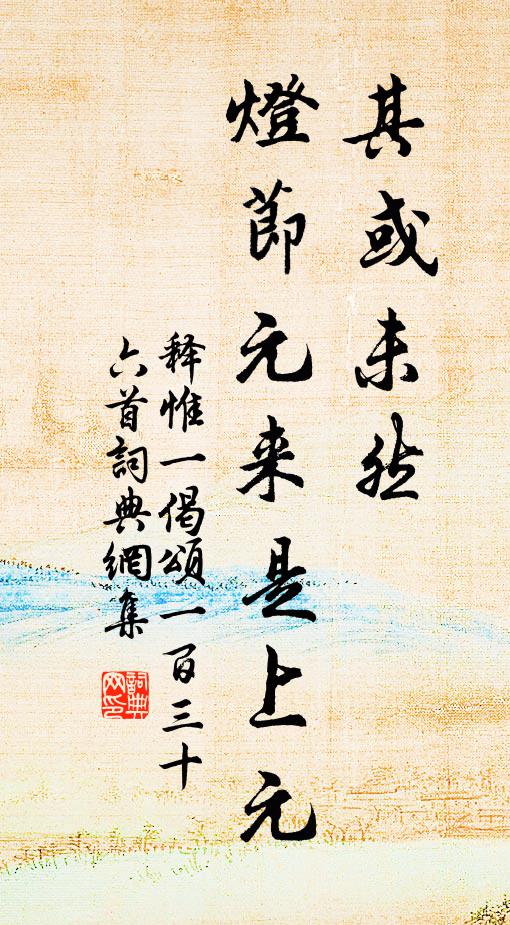 其或未然
燈節元来是上元
释惟一偈頌一百三十
六首詞典網集
詞典
网印